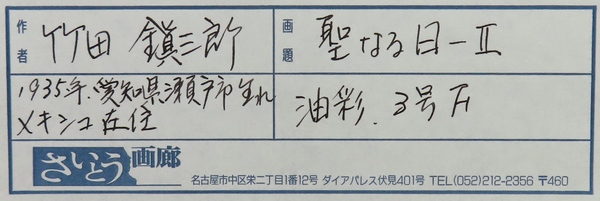 作者 竹田 鎭三郎
画題 聖なる日-II
1935年.愛知県瀬戸市生れ
メキシコ在住
油彩.3号F
さいとう画廊
名古屋市中区栄二丁目1番12号 ダイアパレス伏見401号 TEL(052)212-2356 〒460